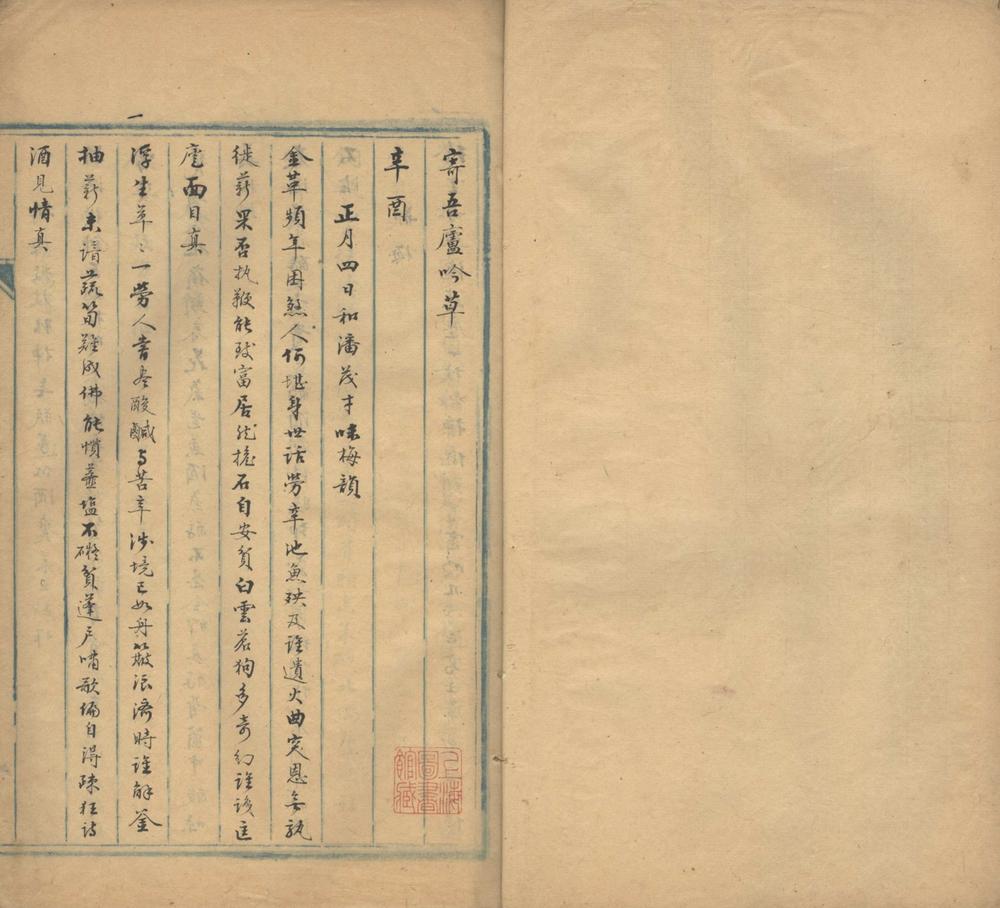 寄吾廬吟草
辛酉
正月四日和潘茂才味梅韻
金革頻年困煞人何堪身世話勞辛池魚殃及誰遺火曲突恩無孰
徙薪果否執鞭能致富居然擔石自安貧白雲蒼狗多奇幻誰識匡
廬面目真
浮生草〻一勞人嘗盡酸鹹与苦辛涉境已如舟簸浪濟時誰解釜
抽薪未諳蔬筍難成佛能慣虀塩不礙貧蓬戶嘯歌偏自得疎狂詩
酒見情真
上海圖書館藏